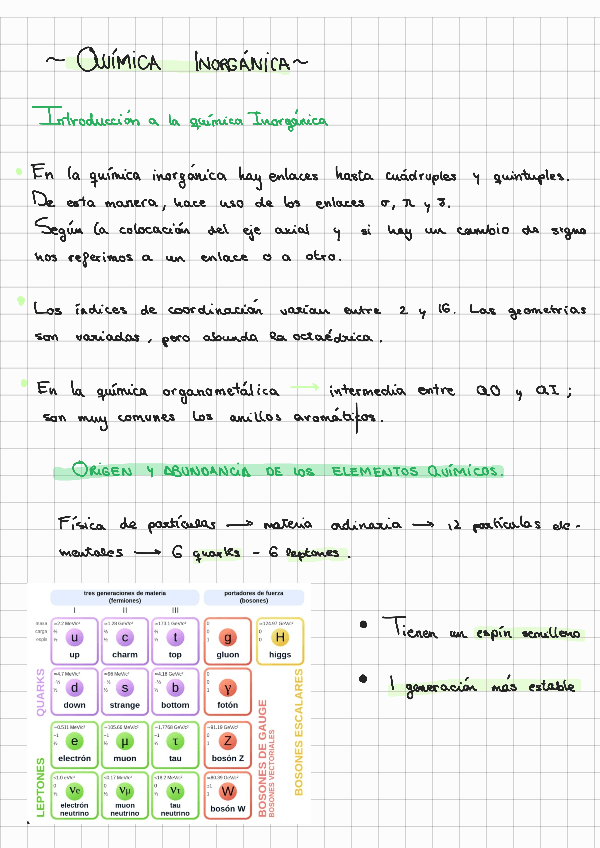 ~ QUÍMICA INORGÁNICA ~
Introducción a la química Inorgánica
En la química inorgánica hay enlaces hasta cuádruples y quintuples.
De esta manera, hace uso de los enlaces σ, π y δ.
Según la colocación del eje axial y si hay un cambio de signo
nos referimos a un enlace o a otro.
Los índices de coordinación varían entre 2 y 16. Las geometrías
son variadas, pero abunda la octaédrica.
En la química organometálica → intermedia entre QO y QI;
son muy comunes los anillos aromáticos.
ORIGEN Y ABUNDANCIA DE LOS ELEMENTOS QUÍMICOS.
Física de partículas → materia ordinaria → 12 partículas ele-
mentales → 6 quarks - 6 leptones.
tres generaciones de materia
(fermiones)
portadores de fuerza
(bosones)
I II III
masa
carga
espín
≈2.2 MeV/c²
⅔
½
u
up
≈1.28 GeV/c²
⅔
½
c
charm
≈173.1 GeV/c²
⅔
½
t
top
0
0
1
g
gluon
≈124.97 GeV/c²
0
0
H
higgs
QUARKS
≈4.7 MeV/c²
-⅓
½
d
down
≈96 MeV/c²
-⅓
½
s
strange
≈4.18 GeV/c²
-⅓
½
b
bottom
0
0
1
γ
fotón
LEPTONES
≈0.511 MeV/c²
-1
½
e
electrón
≈105.66 MeV/c²
-1
½
μ
muon
≈1.7768 GeV/c²
-1
½
τ
tau
≈91.19 GeV/c²
0
1
Z
bosón Z
<1.0 eV/c²
0
½
νe
electrón
neutrino
<0.17 MeV/c²
0
½
νμ
muon
neutrino
<18.2 MeV/c²
0
½
ντ
tau
neutrino
≈80.39 GeV/c²
±1
1
W
bosón W
BOSONES DE GAUGE
BOSONES VECTORIALES
BOSONES ESCALARES
Tienen un espín semilleno
1 generación más estable